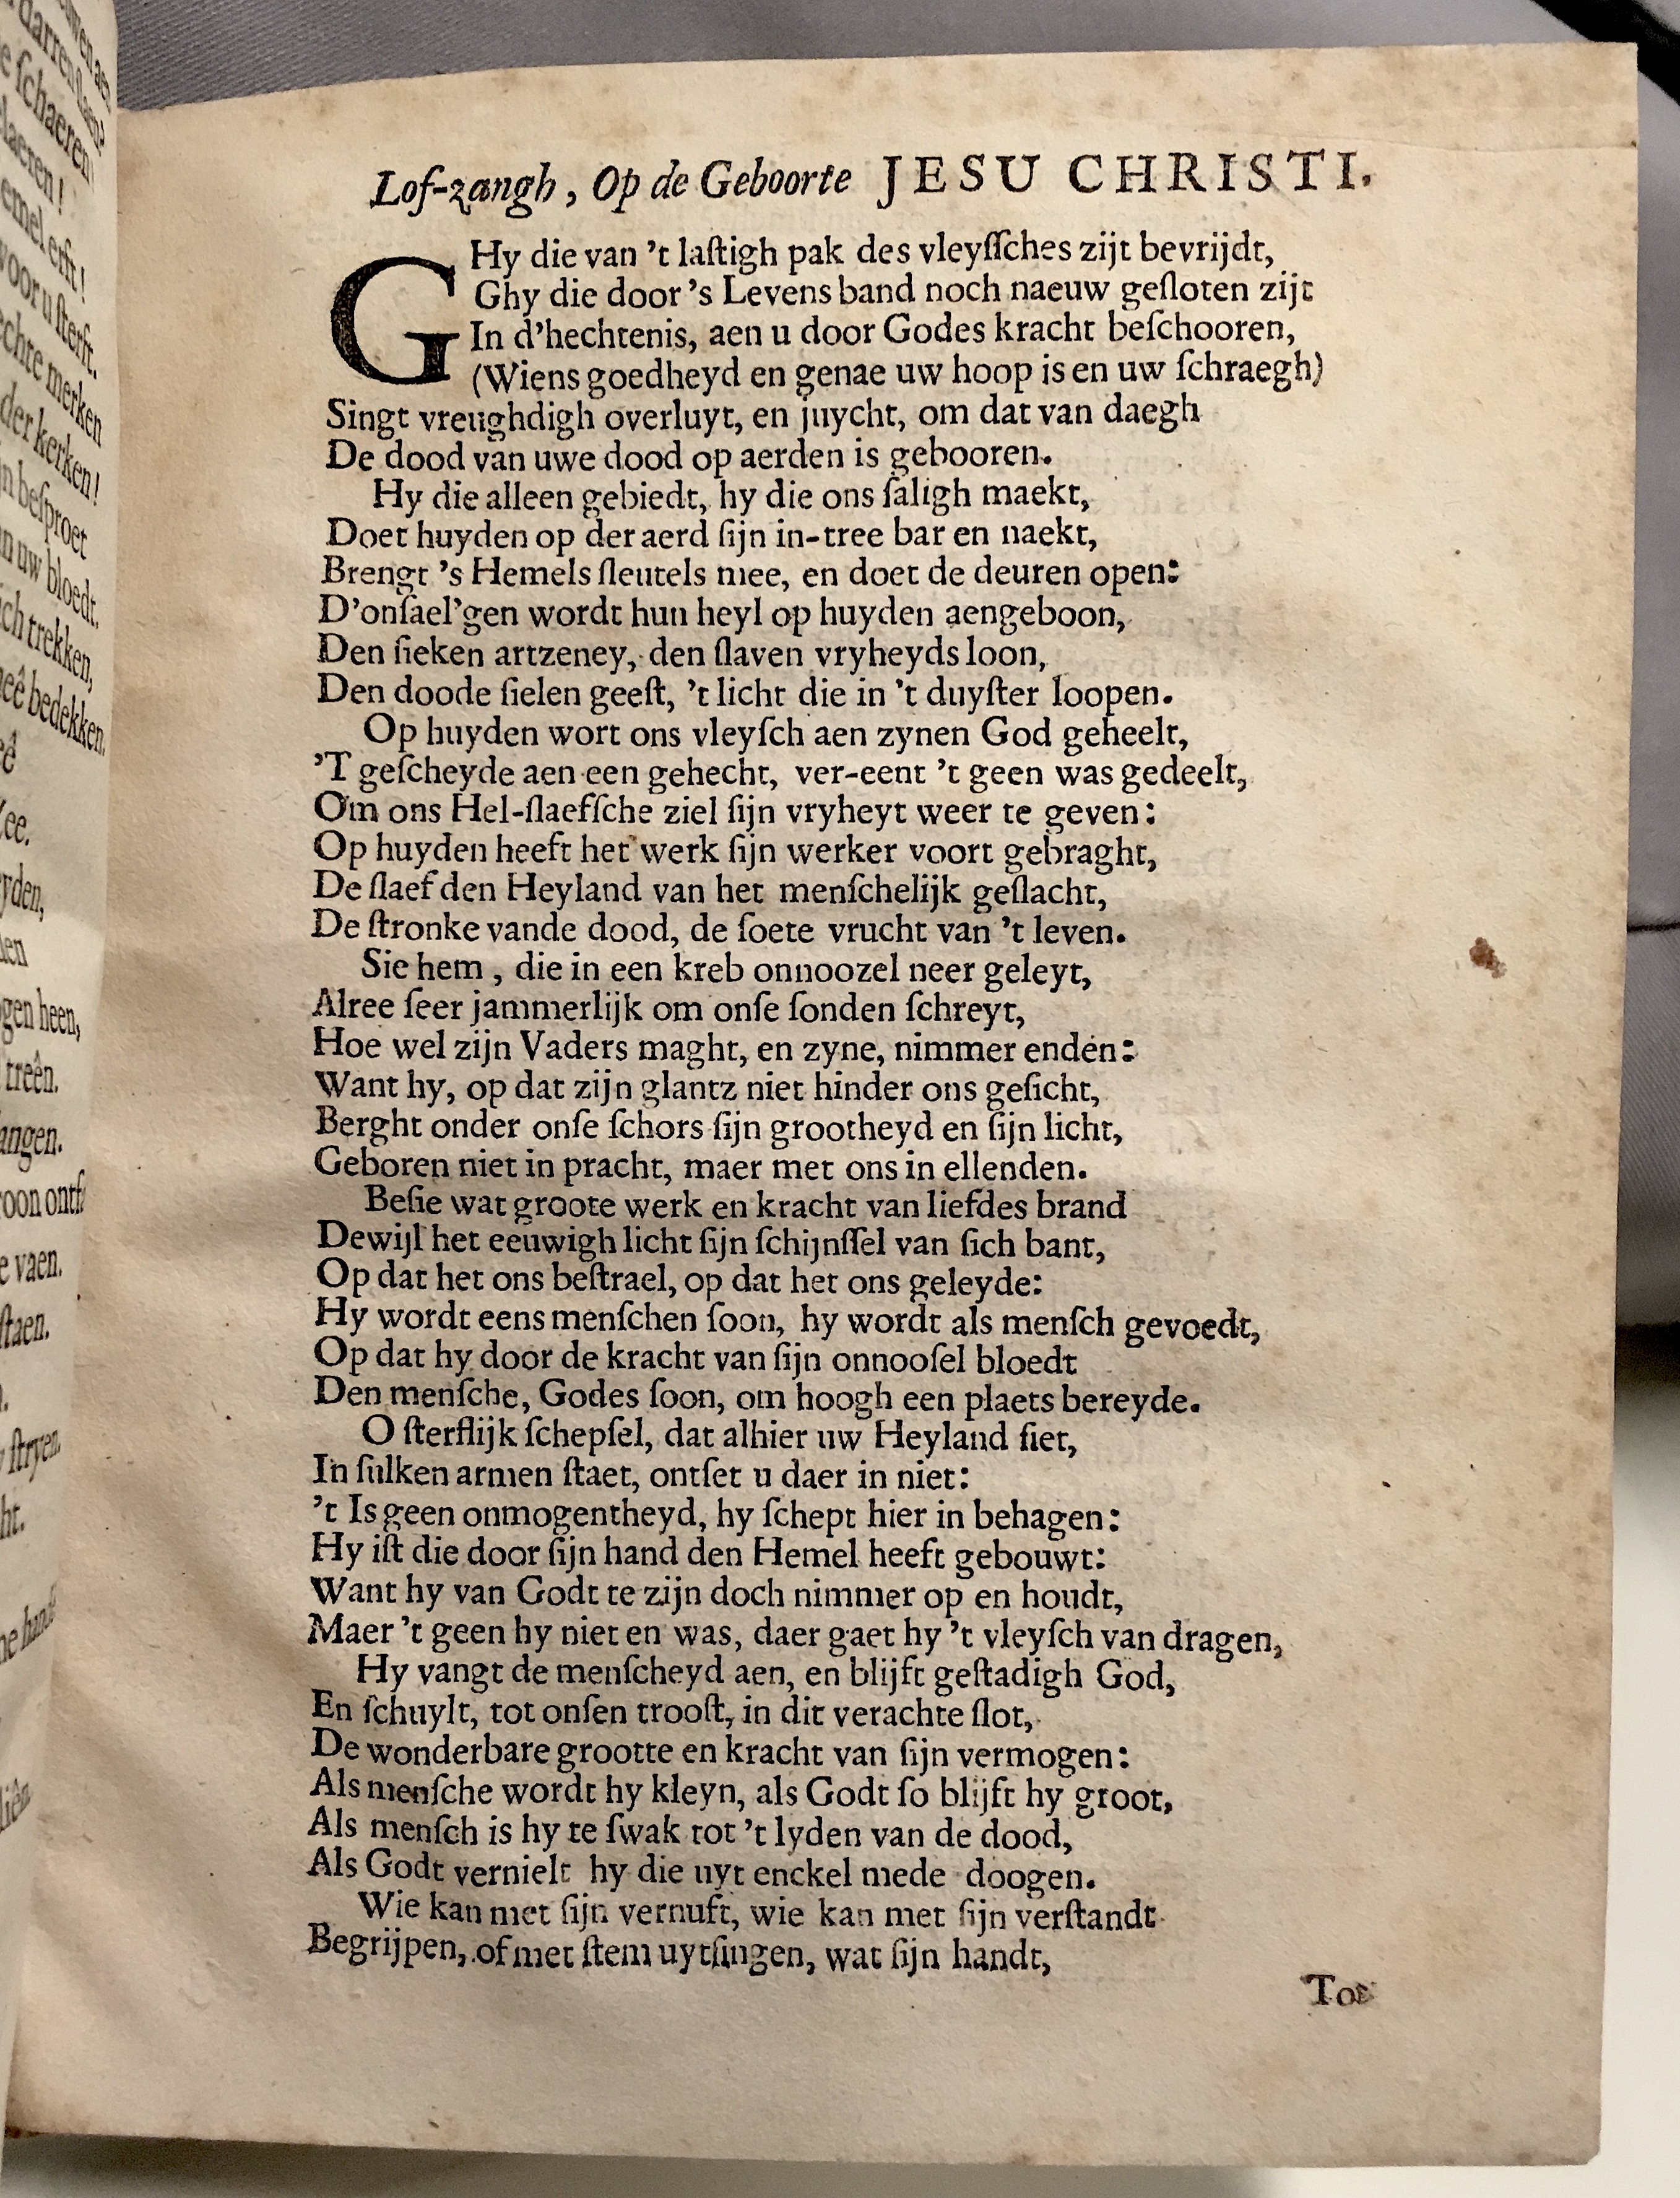 Lof-zangh, Op de Geboorte JESU CHRISTI.
GHy die van 't laſtigh pak des vleyſſches zijt bevrijdt,
Ghy die door 's Levens band noch naeuw geſloten zijt
In d'hechtenis, aen u door Godes kracht beſchooren,
(Wiens goedheyd en genae uw hoop is en uw ſchraegh)
Singt vreughdigh overluyt, en juycht, om dat van daegh
De dood van uwe dood op aerden is gebooren.
Hy die alleen gebiedt, hy die ons ſaligh maekt,
Doet huyden op der aerd ſijn in-tree bar en naekt,
Brengt 's Hemels ſleutels mee, en doet de deuren open:
D'onſael'gen wordt hun heyl op huyden aengeboon,
Den ſieken artzeney, den ſlaven vryheyds loon,
Den doode ſielen geeſt, 't licht die in 't duyſter loopen.
Op huyden wort ons vleyſch aen zynen God geheelt,
'T geſcheyde aen een gehecht, ver-eent 't geen was gedeelt,
Om ons Hel-ſlaefſche ziel ſijn vryheyt weer te geven:
Op huyden heeft het werk ſijn werker voort gebraght,
De ſlaef den Heyland van het menſchelijk geſlacht,
De ſtronke vande dood, de ſoete vrucht van 't leven.
Sie hem, die in een kreb onnoozel neer geleyt,
Alree ſeer jammerlijk om onſe ſonden ſchreyt,
Hoe wel zijn Vaders maght, en zyne, nimmer enden:
Want hy, op dat zijn glantz niet hinder ons geſicht,
Berght onder onſe ſchors ſijn grootheyd en ſijn licht,
Geboren niet in pracht, maer met ons in ellenden.
Beſie wat groote werk en kracht van liefdes brand
Dewijl het eeuwigh licht ſijn ſchijnſſel van ſich bant,
Op dat het ons beſtrael, op dat het ons geleyde:
Hy wordt eens menſchen ſoon, hy wordt als menſch gevoedt,
Op dat hy door de kracht van ſijn onnooſel bloedt
Den menſche, Godes ſoon, om hoogh een plaets bereyde.
O ſterflijk ſchepſel, dat alhier uw Heyland ſiet,
In ſulken armen ſtaet, ontſet u daer in niet:
't Is geen onmogentheyd, hy ſchept hier in behagen:
Hy iſt die door ſijn hand den Hemel heeft gebouwt:
Want hy van Godt te zijn doch nimmer op en houdt,
Maer 't geen hy niet en was, daer gaet hy 't vleyſch van dragen,
Hy vangt de menſcheyd aen, en blijft geſtadigh God,
En ſchuylt, tot onſen trooſt, in dit verachte ſlot,
De wonderbare grootte en kracht van ſijn vermogen:
Als menſche wordt hy kleyn, als Godt ſo blijft hy groot,
Als menſch is hy te ſwak tot 't lyden van de dood,
Als Godt vernielt hy die uyt enckel mede doogen.
Wie kan met ſijn vernuft, wie kan met ſijn verſtandt
Begrijpen, of met ſtem uytſingen, wat ſijn handt,
Tot